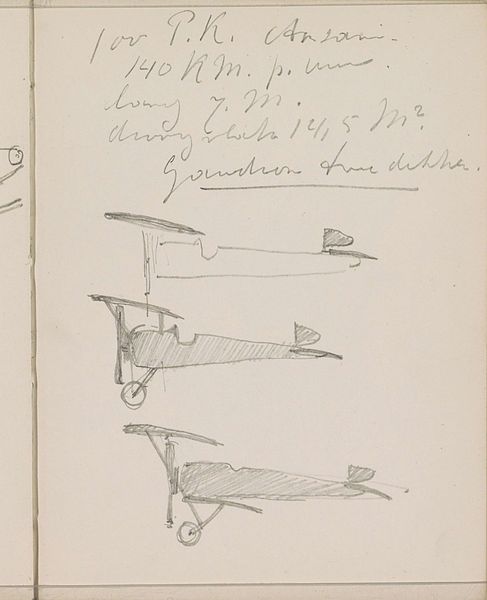 100 P.K. Anzani.
140 KM. p. uur.
lang 7. M.
draagvlak 14,5 M².
Gaudron twee dekker.